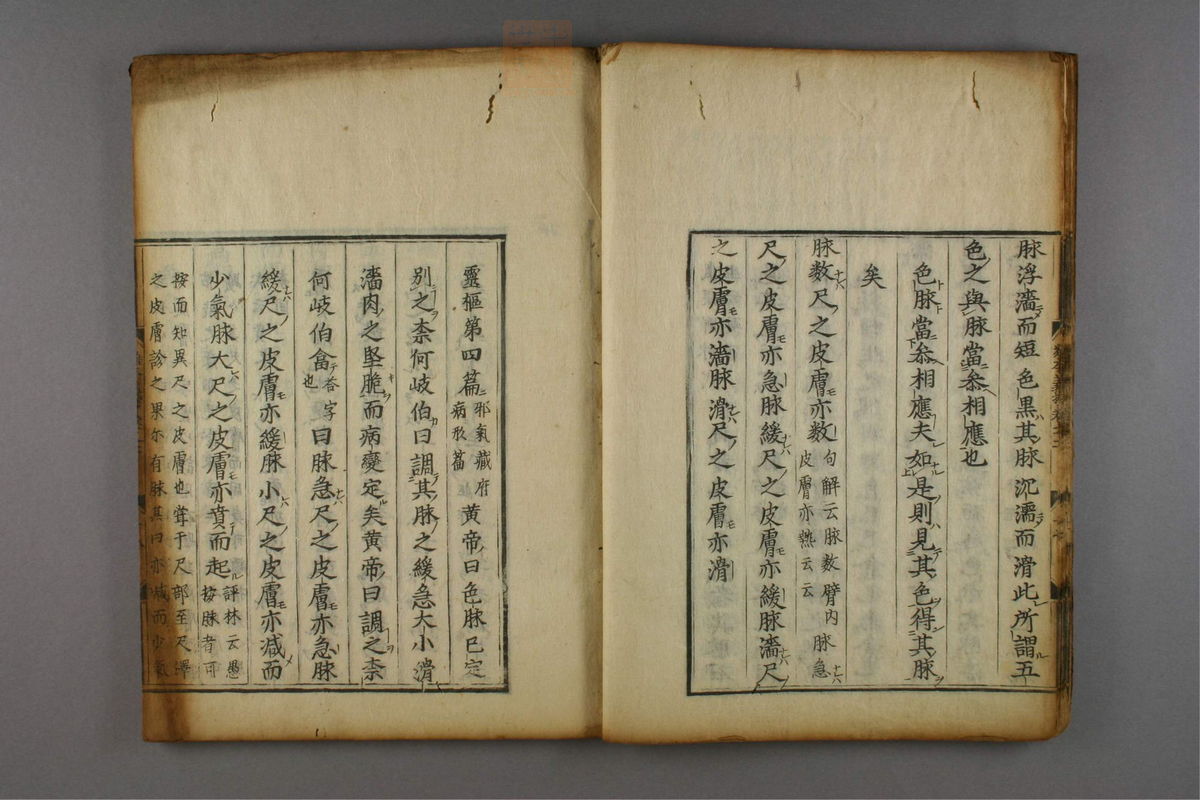 脉浮濇而短色黒其脉沉濡而滑此所謂五
色之與脉當叅相應也
色脉當叅相應夫如是則見其色得其脉
矣
脉数尺之皮膚亦数句解云脉数臂内脉急
皮膚亦熱云云
尺之皮膚亦急脉緩尺之皮膚亦緩脉濇尺
之皮膚亦濇脉滑尺之皮膚亦滑
靈樞第四篇邪氣藏府
病形篇
黄帝曰色脉已定
別之柰何岐伯曰調其脉之緩急大小滑
濇肉之堅脆而病變定矣黄帝曰調之柰
何岐伯畣答字
也
曰脉急尺之皮膚亦急脉
緩尺之皮膚亦緩脉小尺之皮膚亦減而
少氣脉大尺之皮膚亦賁而起評林云愚
按脉者可
按而知異尺之皮膚也葦于尺部至尺澤
之皮膚診之果亦有脉其曰亦減而少氣